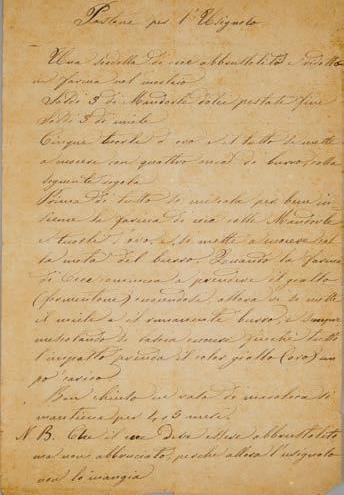 Pastone per l'Usignolo
Una scodella di cece abbrustolito e ridotto
in farina nel mortaio
Soldi 3 di Mandorle dolci pestate fine
Soldi 3 di miele
Cinque torli d'ovo e il tutto si mette
a cuocere con quattro oncie di burro, colla
seguente regola
Prima di tutto si mescola per bene in-
sieme la farina di ceci colle Mandorle
e tuorli d'ovo, e si mette a cuocere con
la metà del burro. Quando la farina
di Cece comincia a prendere il giallo
(formentone) cuocendosi, allora vi si mette
il miele e il rimanente burro, e sempre
mescolando si lascia cuocere finchè tutto
l'impasto prenda il color giallo (oro) un
po' carico.
Ben chiuso in vaso di maiolica si
mantiene per 4, o 5 mesi.
N B. Che il cece deve essere abbrustolito
ma non abbruciato, perchè allora l'usignolo
non lo mangia